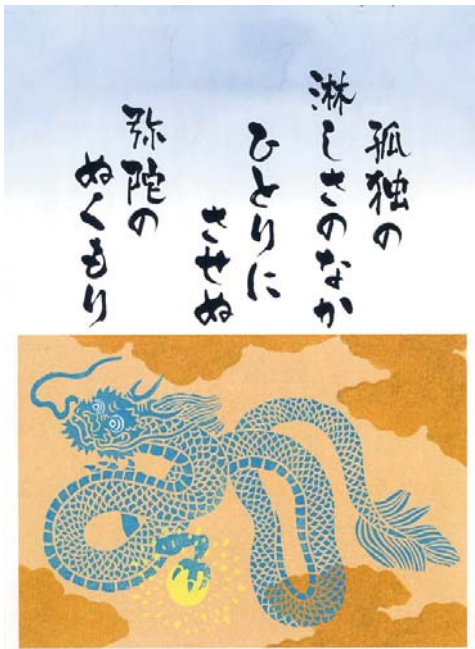 孤独の
淋しさのなか
ひとりに
させぬ
弥陀の
ぬくもり